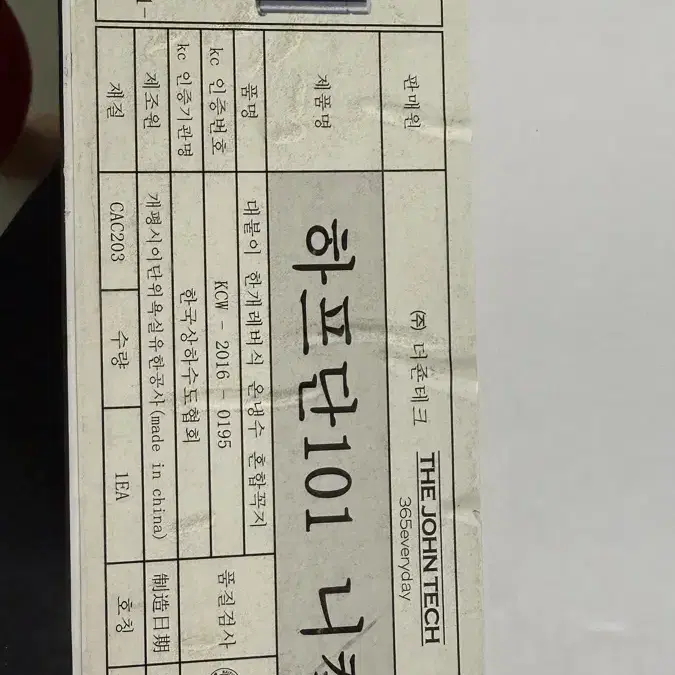 판매원 (주) 더죤테크 THE JOHN TECH
365everyday
제품명 하프단101 니
품명 대붙이 한개레버식 온냉수 혼합꼭지
kc 인증번호 KCW - 2016 - 0195 품질검사
kc 인증기관명 한국상하수도협회
제조원 개평시이단위욕실유한공사(made in china) 制造日期
재질 CAC203 수량 1EA 호칭